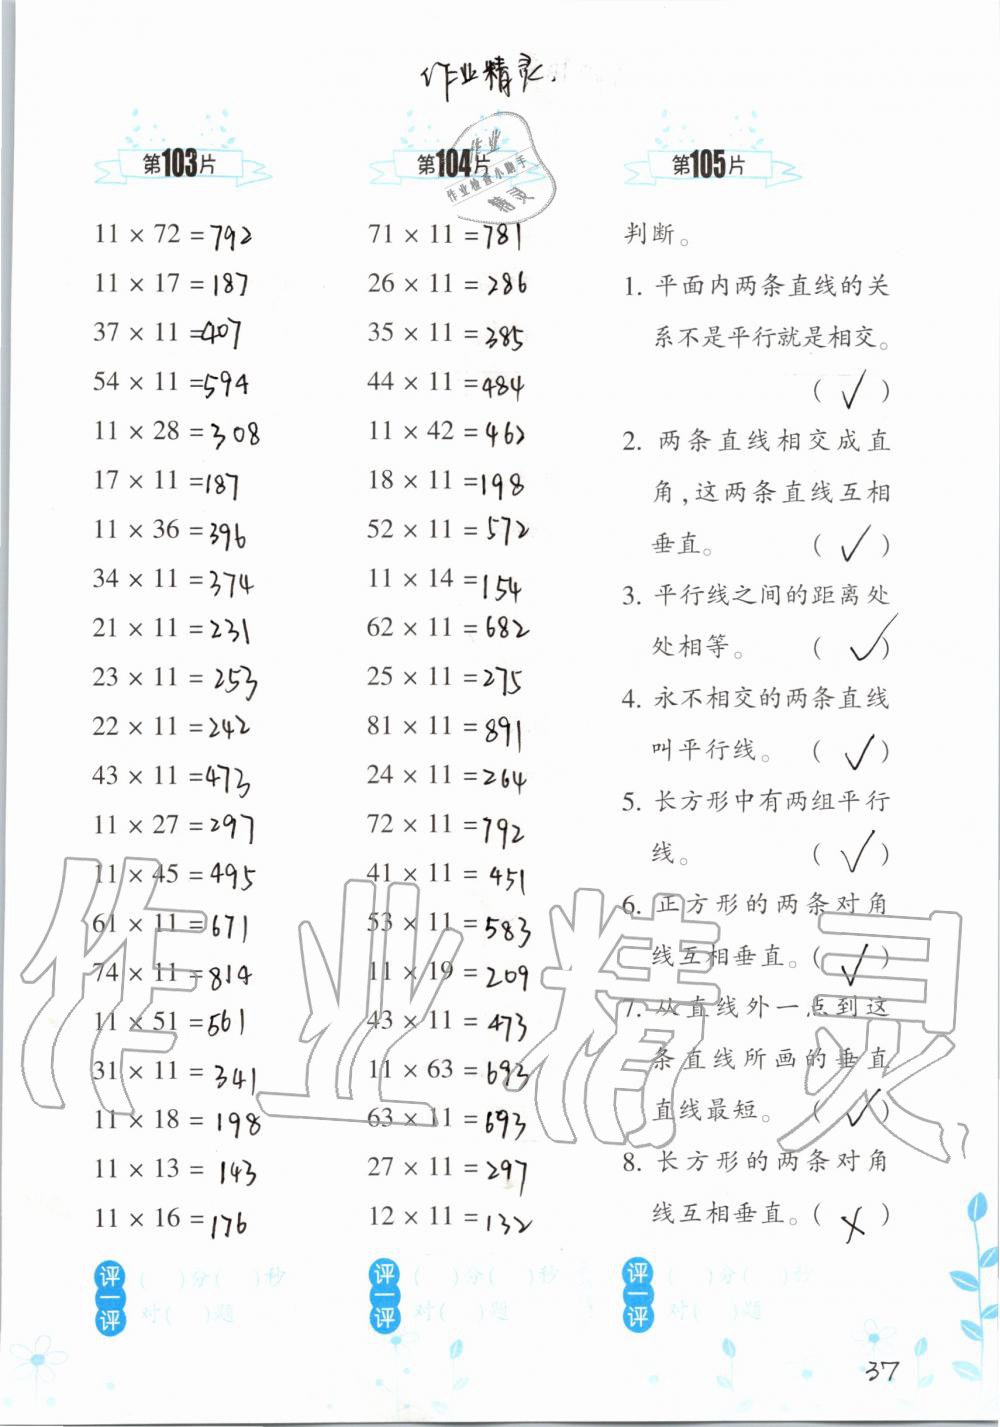 作业精灵
第103片
11 × 72 = 792
11 × 17 = 187
37 × 11 = 407
54 × 11 = 594
11 × 28 = 308
17 × 11 = 187
11 × 36 = 396
34 × 11 = 374
21 × 11 = 231
23 × 11 = 253
22 × 11 = 242
43 × 11 = 473
11 × 27 = 297
11 × 45 = 495
61 × 11 = 671
74 × 11 = 814
11 × 51 = 561
31 × 11 = 341
11 × 18 = 198
11 × 13 = 143
11 × 16 = 176
评一评
( )分( )秒
对( )题
第104片
作业
作业检查小助手
精灵
71 × 11 = 781
26 × 11 = 286
35 × 11 = 385
44 × 11 = 484
11 × 42 = 462
18 × 11 = 198
52 × 11 = 572
11 × 14 = 154
62 × 11 = 682
25 × 11 = 275
81 × 11 = 891
24 × 11 = 264
72 × 11 = 792
41 × 11 = 451
53 × 11 = 583
11 × 19 = 209
43 × 11 = 473
11 × 63 = 693
63 × 11 = 693
27 × 11 = 297
12 × 11 = 132
评一评
( )分( )秒
对( )题
第105片
判断。
1. 平面内两条直线的关
系不是平行就是相交。
( ✓ )
2. 两条直线相交成直
角,这两条直线互相
垂直。 ( ✓ )
3. 平行线之间的距离处
处相等。 ( ✓ )
4. 永不相交的两条直线
叫平行线。 ( ✓ )
5. 长方形中有两组平行
线。 ( ✓ )
6. 正方形的两条对角
线互相垂直。( ✓ )
7. 从直线外一点到这
条直线所画的垂直
直线最短。 ( ✓ )
8. 长方形的两条对角
线互相垂直。( × )
评一评
( )分( )秒
对( )题
作业精灵
37